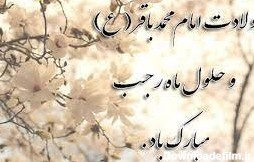 ولادت امام محمد باقر (ع)
و حلول ماه رجب
مبارک باد.